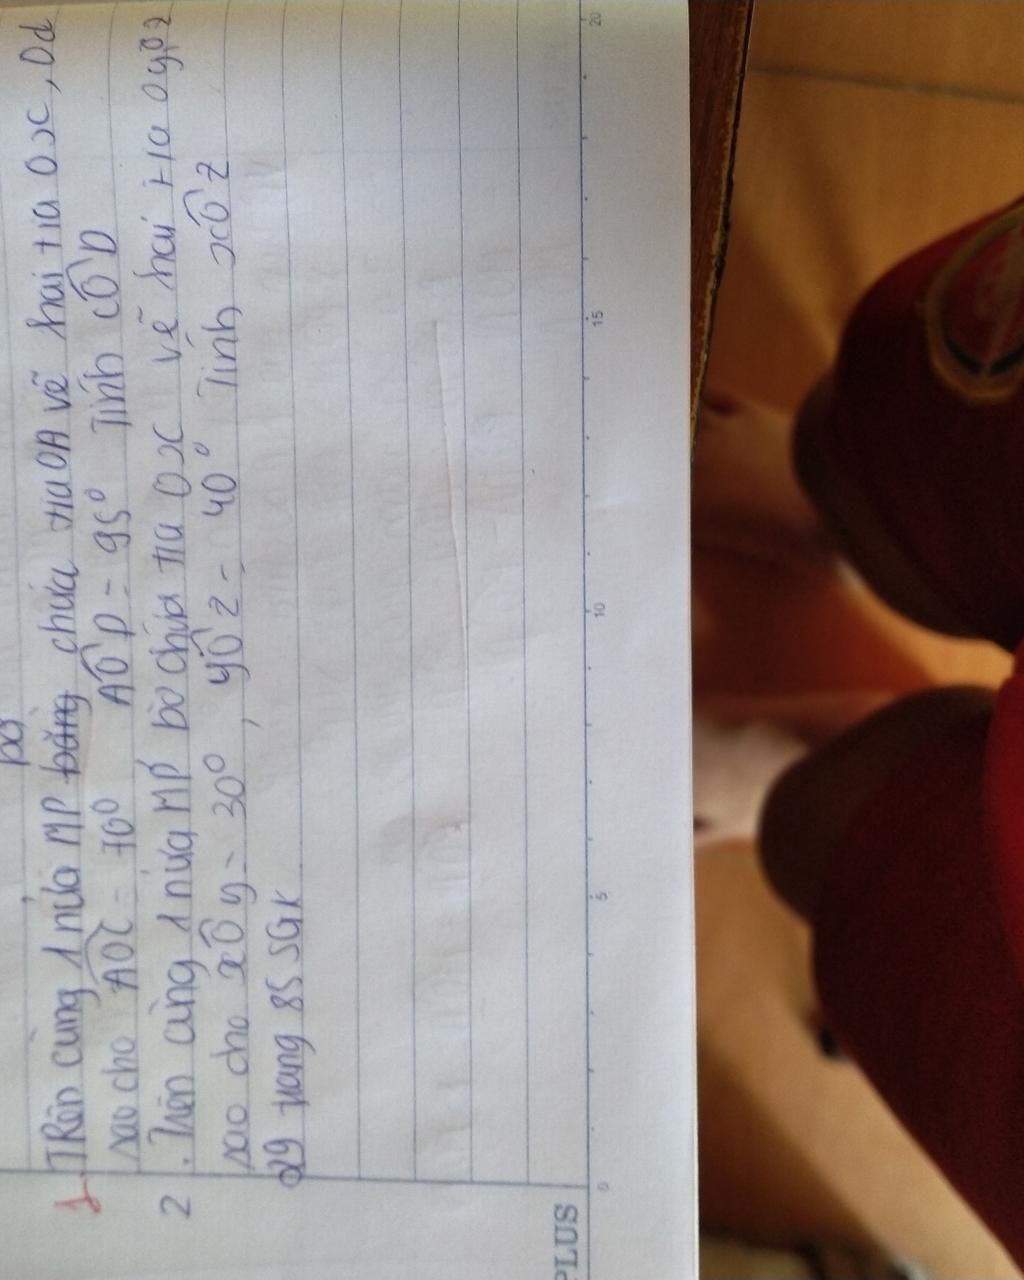 bờ
1. TRên cùng 1 nửa MP bằng chứa tia OA vẽ hai tia Oc, Od
sao cho AOC = 70° AÔD = 95° Tính CÔD
2 . Trên cùng 1 nửa MP bờ chứa tia Ox vẽ hai tia oy, Oz
sao cho xÔy = 30°, yÔz = 40° Tính xÔz
29 trang 85 SGK
0 5 10 15 20
PLUS